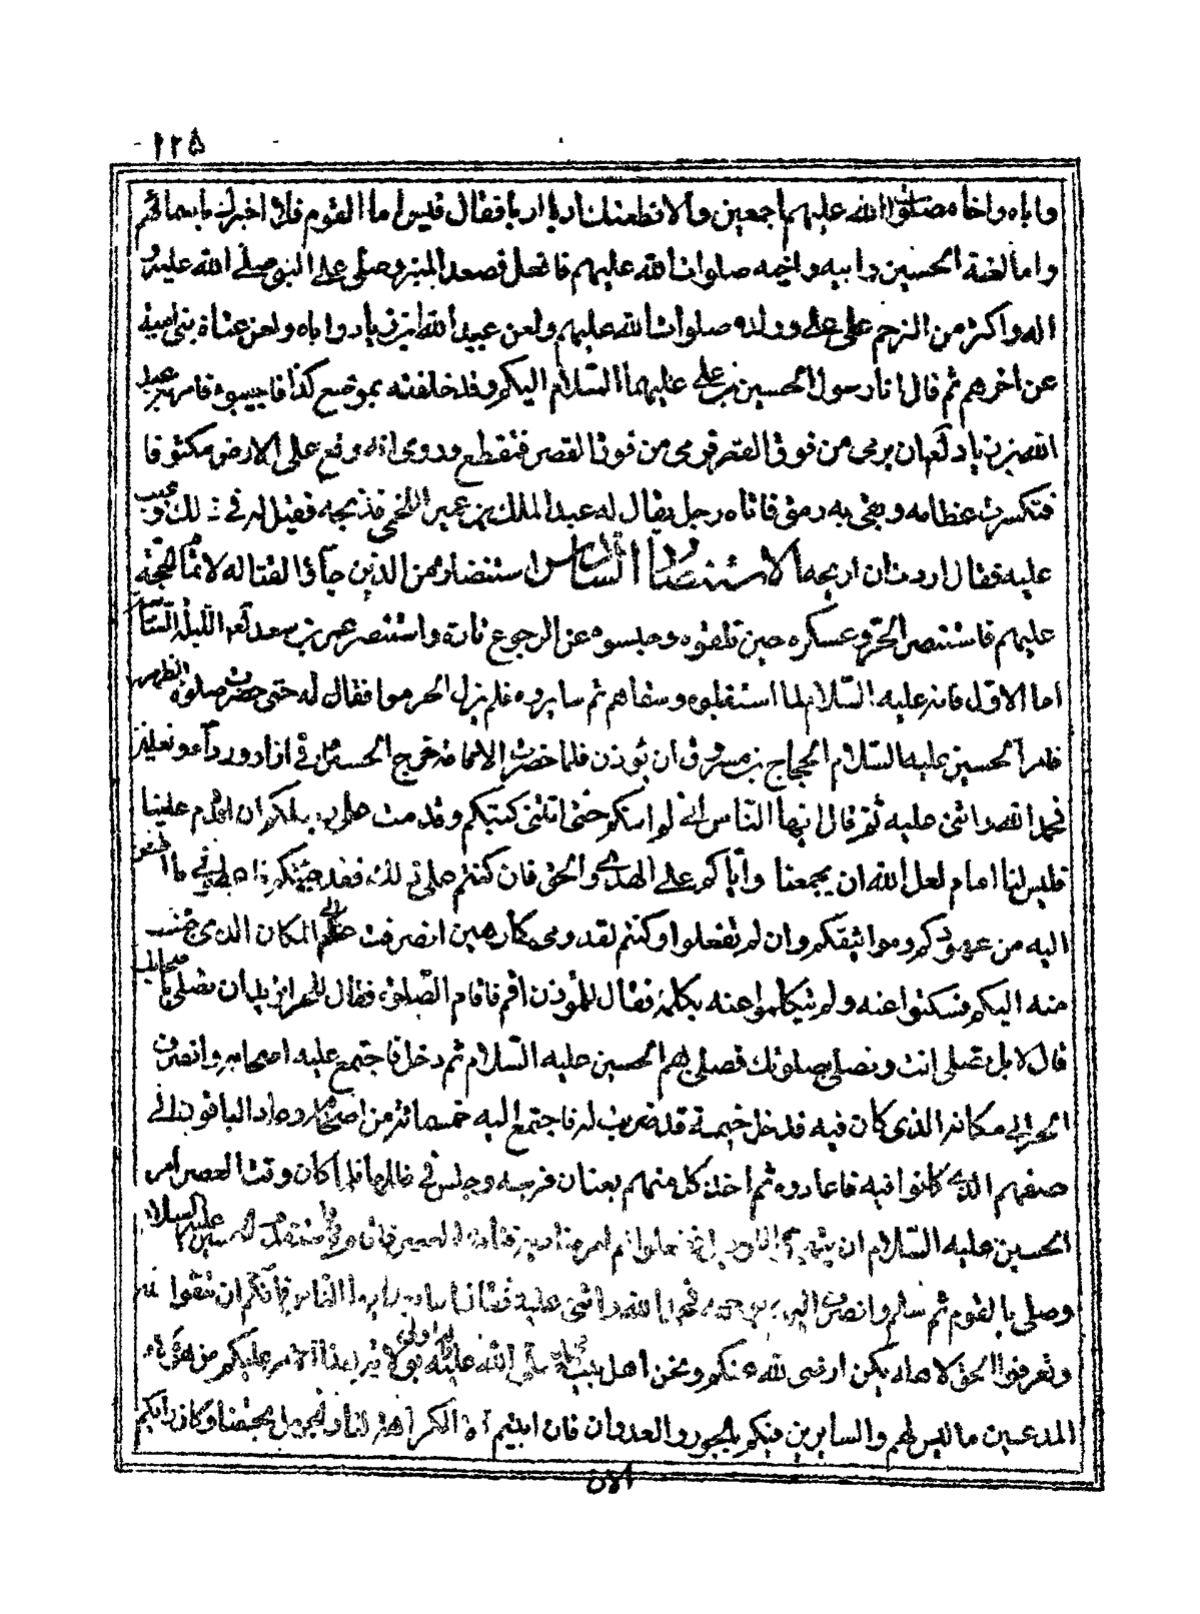 ١٢٥
واباه واخاه صلوات الله عليهم اجمعين والا قطعتك اربا اربا فقال قيس اما القوم فلا اخبرك باسمائهم
واما لعنة الحسين وابيه واخيه صلوات الله عليهم فافعل فصعد المنبر وصلى على النبي صلى الله عليه و
اله واكثر من الترحم على علي وولده صلوات الله عليهم ولعن عبيد الله ابن زياد واباه ولعن عتاة بني امية
عن اخرهم ثم قال انا رسول الحسين بن علي عليهما السلام اليكم وقد خلفته بموضع كذا فاجيبوه فامر عبيد
الله بن زياد لعنه ان يرمى من فوق القصر فرمى من فوق القصر فتقطع وروى انه وقع على الارض مكتوفا
فتكسرت عظامه وبقي به رمق فاتاه رجل يقال له عبد الملك بن عمير اللخمي فذبحه فقيل له في ذلك وعيب
عليه فقال اردت ان اريحه الاستنصار السادس استنصاره من الذين جاؤا لقتاله لاتمام الحجة
عليهم فاستنصر الحر وعسكره حين تلقوه وحبسوه عن الرجوع تارة واستنصر عمر بن سعد لعنه الليلة السادسة
اما الاول فانه عليه السلام لما استقبلوه وسقاهم ثم سايروه فلم يزل الحر موافقا له حتى حضرت صلوة الظهر
فامر الحسين عليه السلام الحجاج بن مسروق ان يؤذن فلما حضرت الاقامة خرج الحسين في ازار ورداء ونعلين
فحمد الله واثنى عليه ثم قال ايها الناس اني لم اتكم حتى اتتني كتبكم وقدمت علي رسلكم ان اقدم علينا
فليس لنا امام لعل الله ان يجمعنا واياكم على الهدى والحق فان كنتم على ذلك فقد جئتكم فاعطوني ما اطمئن
اليه من عهودكم ومواثيقكم وان لم تفعلوا وكنتم لقدومي كارهين انصرفت عنكم الى المكان الذي جئت
منه اليكم فسكتوا عنه ولم يتكلموا عنه بكلمة فقال للمؤذن اقم فاقام الصلوة فقال للحر اتريد ان تصلي باصحابك
قال لا بل تصلي انت ونصلي بصلوتك فصلى بهم الحسين عليه السلام ثم دخل فاجتمع عليه اصحابه وانصرف
الحر الى مكانه الذي كان فيه فدخل خيمة قد ضربت له فاجتمع اليه خمسمائة من اصحابه وعاد الباقون الى
صفهم الذي كانوا فيه فاعادوه ثم اخذ كل منهم بعنان فرسه وجلس في ظلها فلما كان وقت العصر امر
الحسين عليه السلام ان يتهيؤا للرحيل ففعلوا ثم امر مناديه فنادى بالعصر فاقام فاستقدم الحسين عليه السلام
وصلى بالقوم ثم سلم وانصرف اليهم بوجهه فحمد الله واثنى عليه فقال اما بعد ايها الناس فانكم ان تتقوا الله
وتعرفوا الحق لاهله يكن ارضى لله عنكم ونحن اهل بيت محمد صلى الله عليه واله اولى بولاية هذا الامر عليكم من هؤلاء
المدعين ما ليس لهم والسايرين فيكم بالجور والعدوان فان ابيتم الا الكراهة لنا والجهل بحقنا وكان رايكم
الان